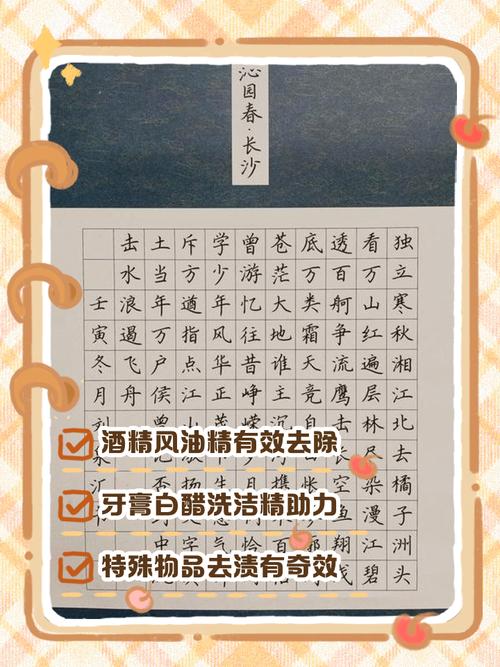 沁园春·长沙
独立寒秋湘江北去橘子洲头
看万山红遍层林尽染漫江碧
透百舸争流鹰击长空鱼翔浅
底万类霜天竞自怅廓
苍茫大地谁主沉携百
曾游忆往昔峥嵘月恰
学少年风华正茂生意气
斥方遒指点江山扬字
土当年万户侯曾否到中
击水浪遏飞舟
壬寅冬月刘汇
酒精风油精有效去除
牙膏白醋洗洁精助力
特殊物品去渍有奇效